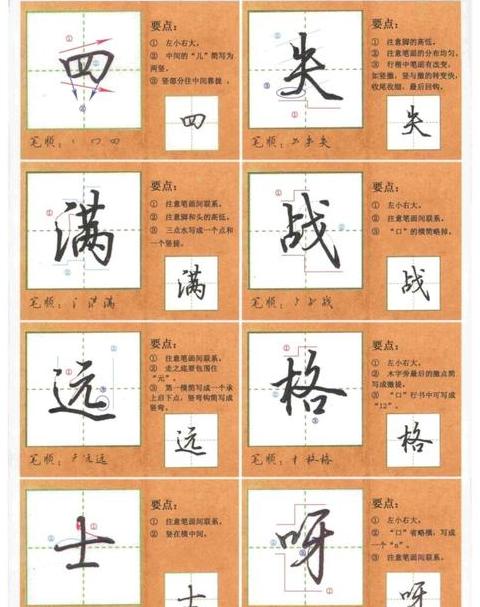 四
要点：
① 左小右大。
② 中间的“儿”简写为
两竖。
③ 竖部分往中间靠拢。
四
笔顺：
失
要点：
① 注意脚的高低。
② 注意笔画的分布均匀。
③ 行楷中笔画有改变，
如竖撇，竖与撇的转变快，
收尾收细，最后回钩。
失
笔顺：
满
要点：
① 注意笔画间联系。
② 注意脚和头的高低。
③ 三点水写成一个点和
一个竖提。
满
笔顺：
战
要点：
① 左小右大。
② 注意笔画间联系。
③ “口”的横简略掉。
战
笔顺：
远
要点：
① 注意笔画间联系。
② 走之底要包围住
“元”。
③ 第一横简写成一个承
上启下点，竖弯钩简写成
竖弯。
远
笔顺：
格
要点：
① 左小右大。
② 木字旁最后的撇点简
写成撇提。
③ “口”行书中可写成
“12”。
格
笔顺：
士
要点：
① 注意笔画间联系。
② 竖在横中间。
士
呀
要点：
① 左小右大。
② “口”省略横，写成
一个“n”。
③ 注意笔画间联系。
呀